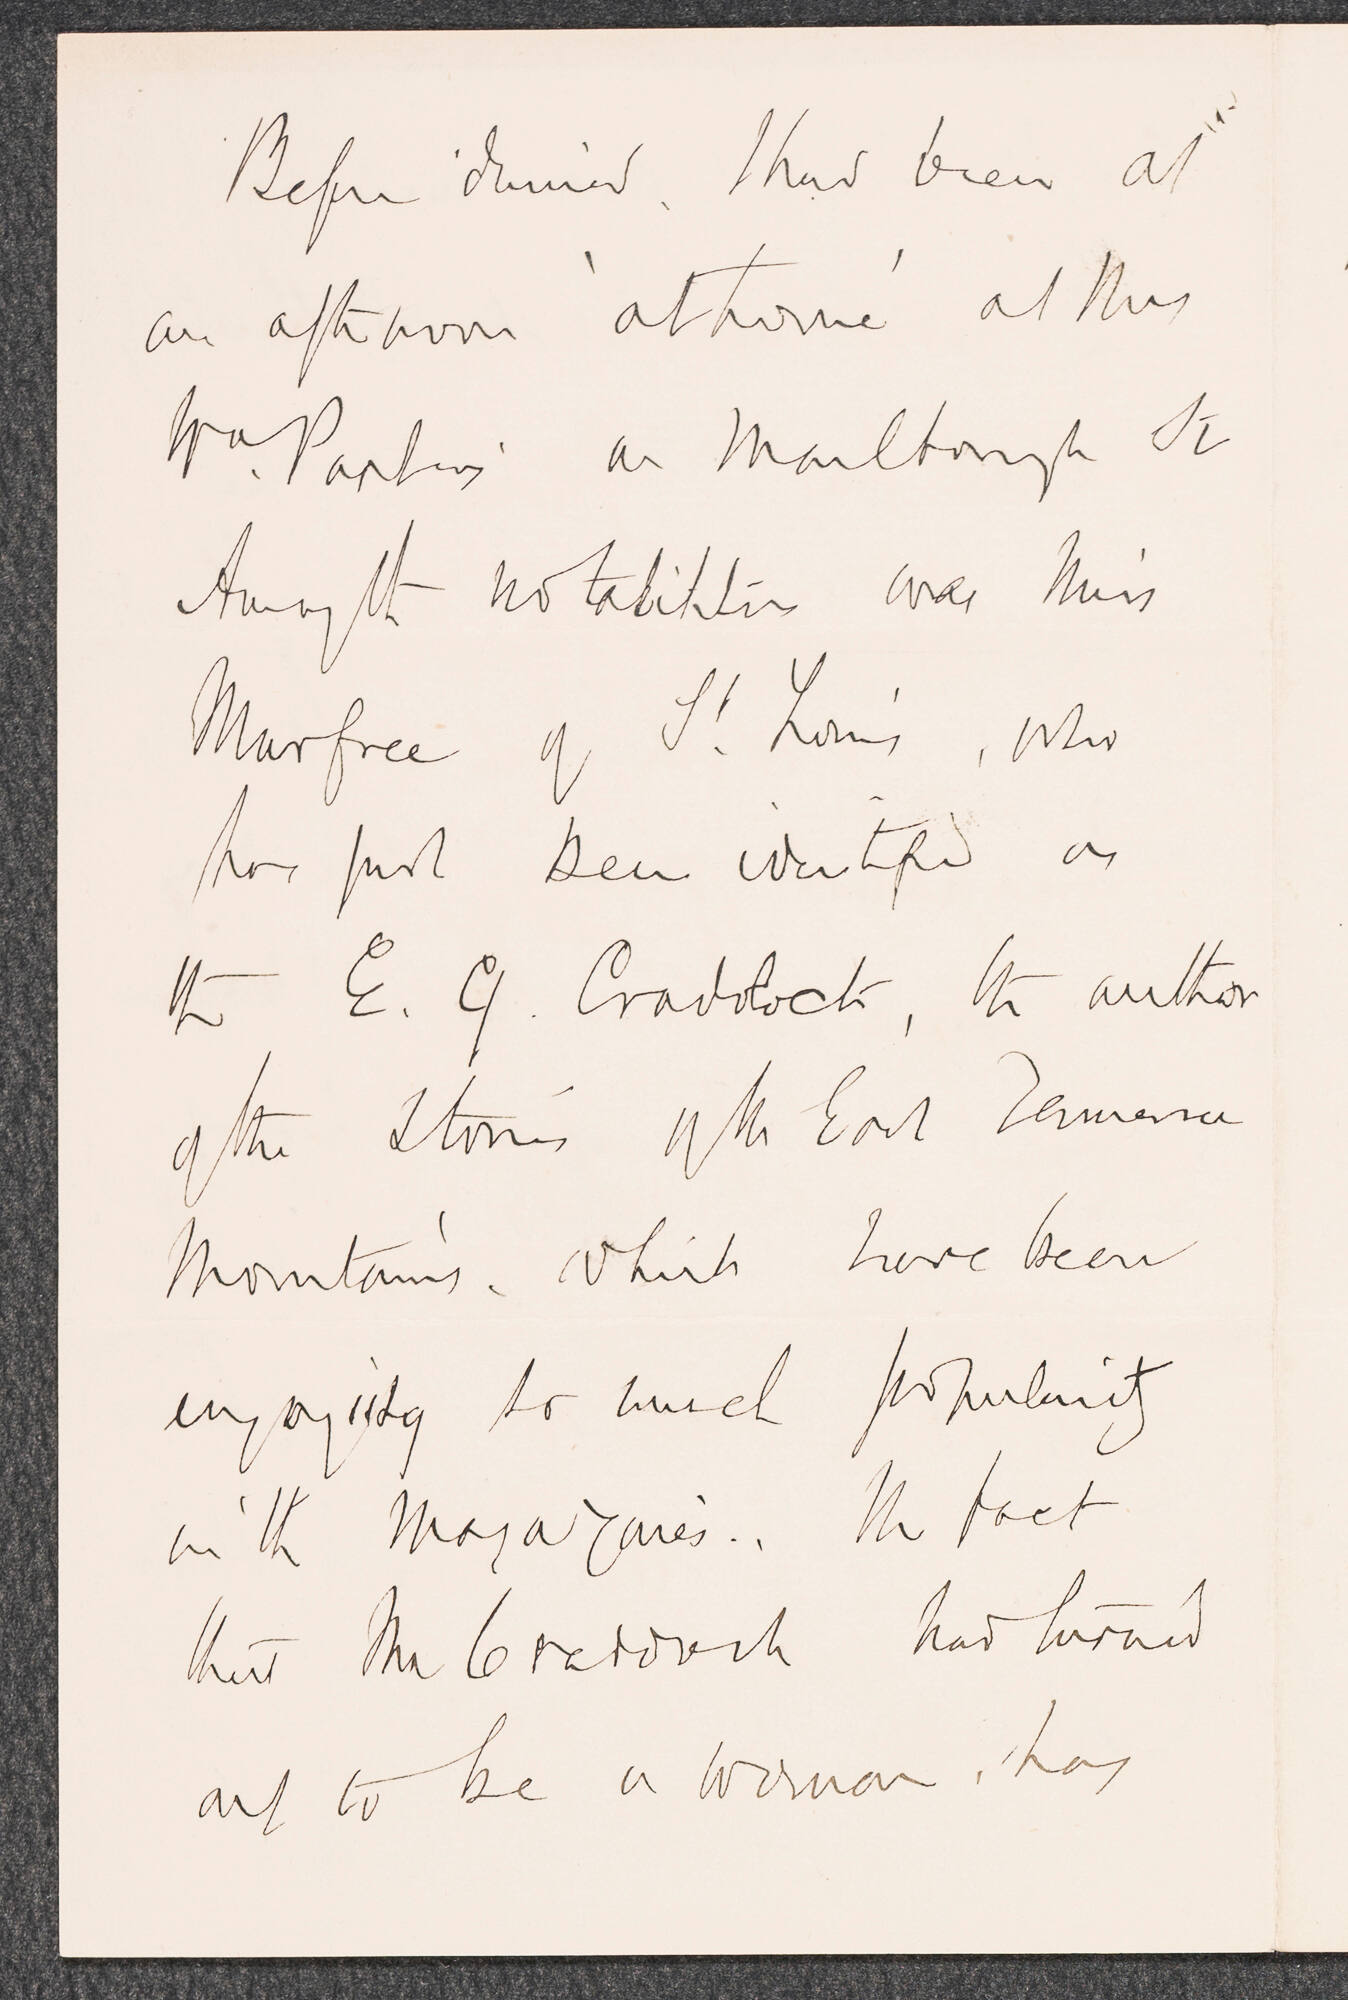 Before dinner, I had been at
an afternoon 'at home' at Mrs
Wm. Parkins' on Marlborough St
Among the notabilities was Miss
Murfree of St. Louis, who
has just been identified as
the E. G. Craddock, the author
of the stories of the East Tennessee
Mountains, which have been
enjoying so much popularity
in the Magazines. The fact
that Mr Craddock had turned
out to be a woman, has